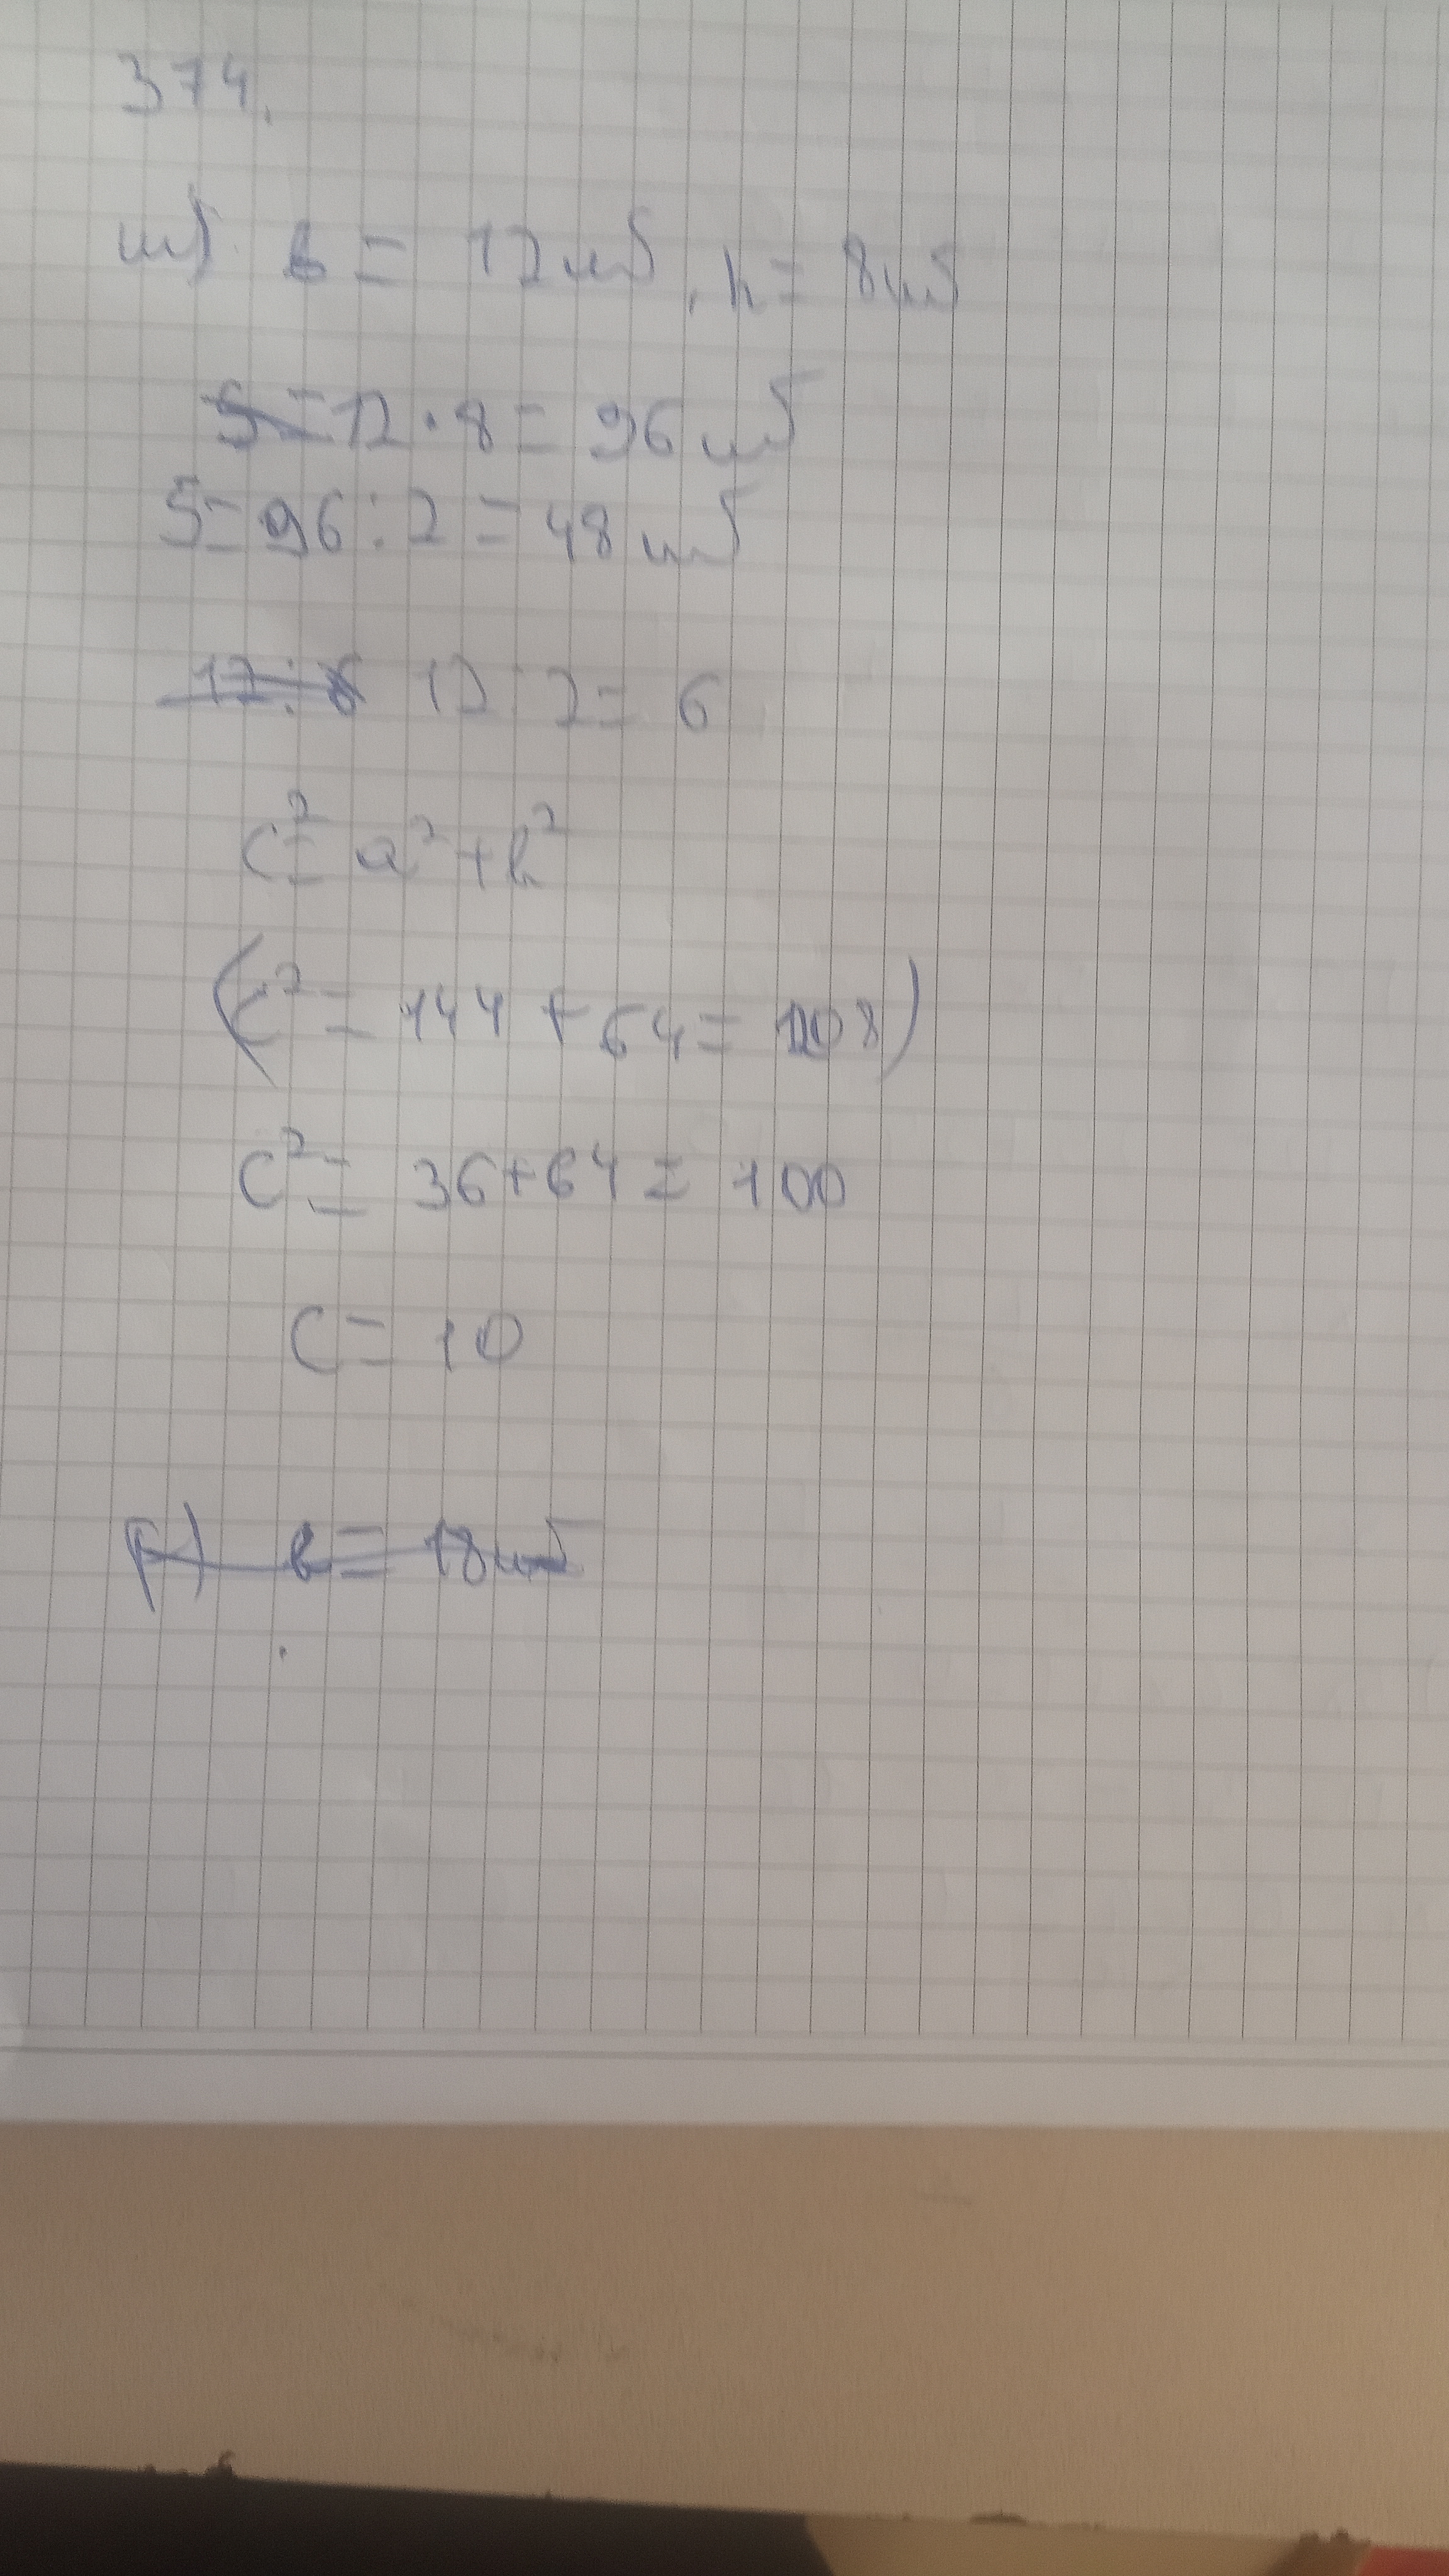 374.
ա) b = 12 սմ, h = 8 սմ
S = 12 · 8 = 96 սմ
S = 96 : 2 = 48 սմ
12 : 6 12 : 2 = 6
c² = a² + b²
(c² = 144 + 64 = 208)
c² = 36 + 64 = 100
c = 10
բ) b = 18 սմ